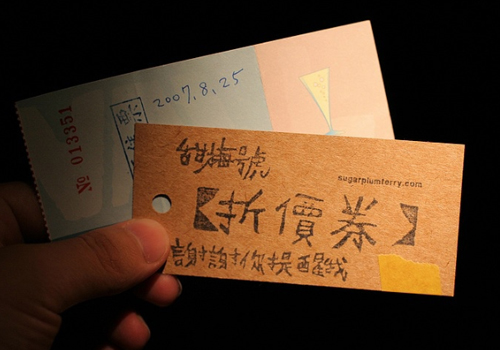 2007,8,25
№ 013351
甜梅號
sugarplumferry.com
【折價券】
謝謝你提醒我